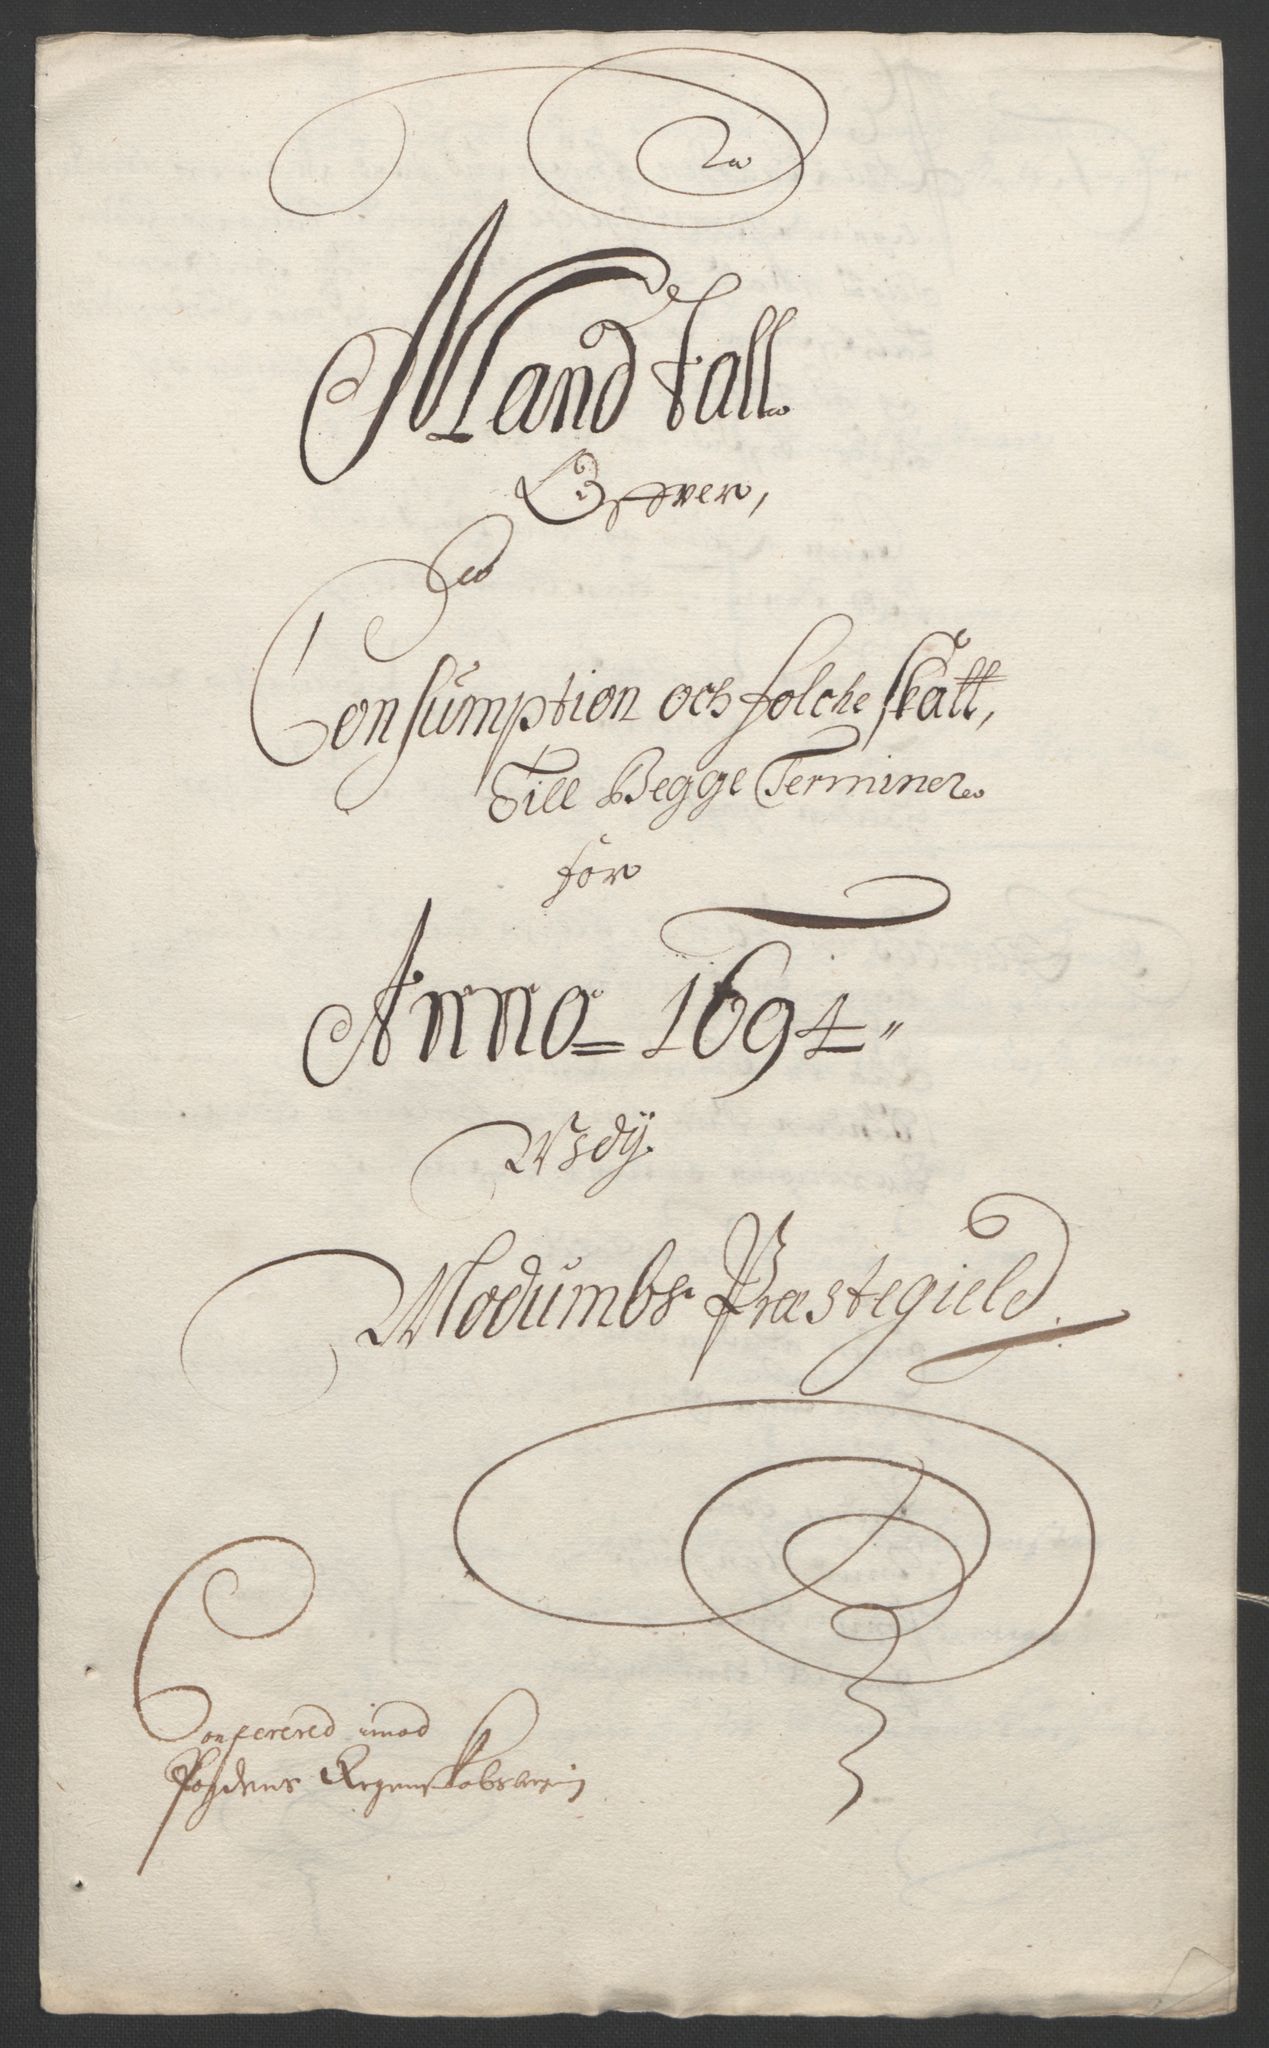 Mand tall
Offver,
Consumption och folche skatt,
Till Begge Terminer
for
Anno 1694
Udj
Modumbs Præstegield.
Conferered imod
Fogdens Regenskabs